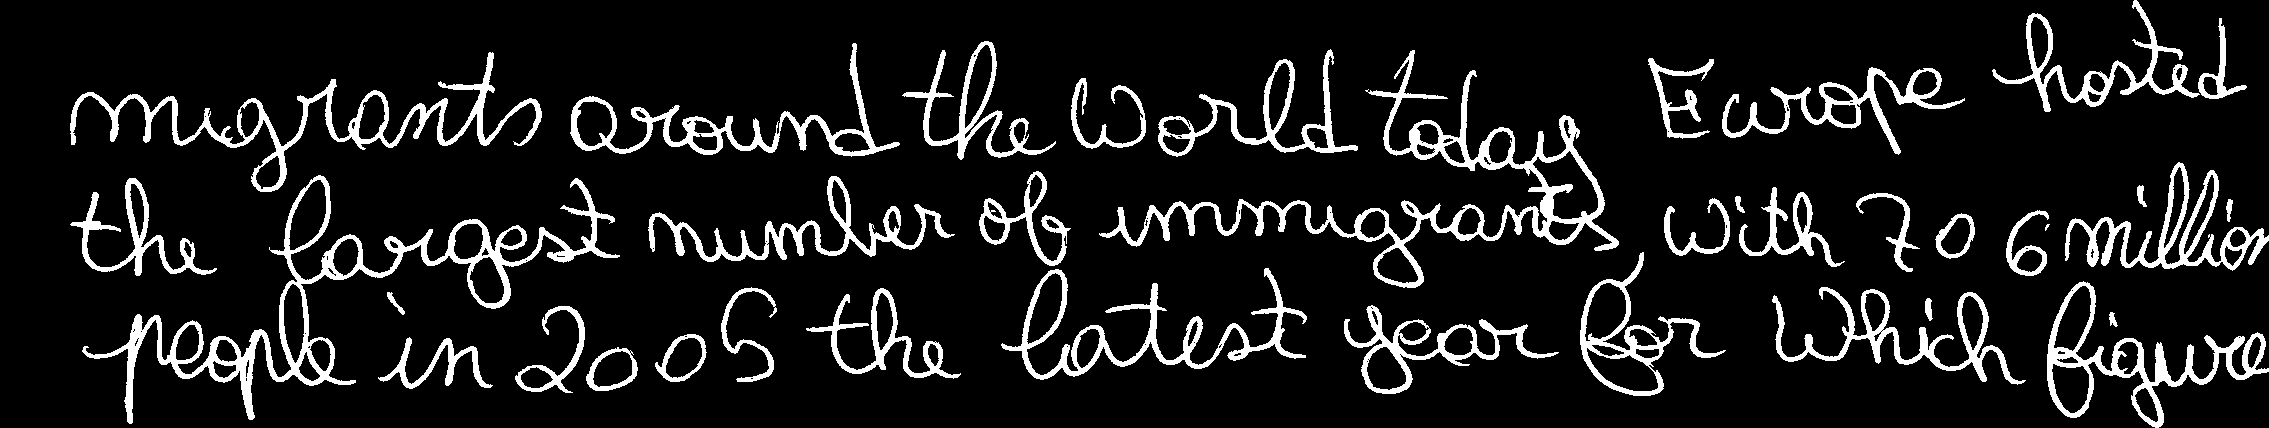 migrants around the World today Europe hosted
the largest number of immigrants, with 70 6 million
people in 2005 the latest year for Which figure